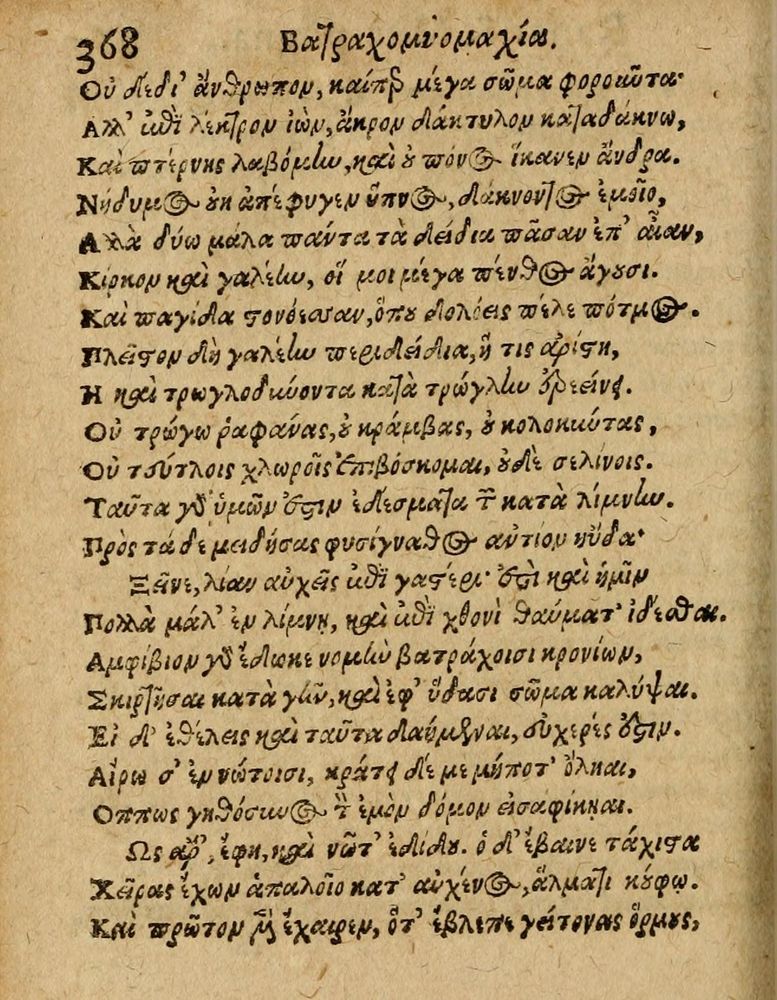 368 Βατραχομυομαχία.
Οὐ δέδι' ἄνθρωπον, καίπερ μέγα σῶμα φοροῦντα·
Αλλ' ἐπὶ λέκτρον ἰὼν, ἄκρον δάκτυλον καταδάκνω,
Καὶ πτέρνης λαβόμην, καὶ οὐ πόνος ἵκανεν ἄνδρα.
Νήδυμος οὐκ ἀπέφυγεν ὕπνος, δάκνοντος ἐμοῖο,
Αλλὰ δύω μάλα πάντα τὰ δείδια πᾶσαν ἐπ' αἶαν,
Κίρκον καὶ γαλέην, οἵ μοι μέγα πένθος ἄγουσι.
Καὶ παγίδα στονόεσσαν, ὅπου δολόεις πέλε πότμος.
Πλεῖστον δὴ γαλέην περιδείδια, ἥ τις ἀρίστη,
Η καὶ τρωγλοδύοντα κατὰ τρώγλην ἐρεείνει.
Οὐ τρώγω ῥαφάνας, οὐ κράμβας, οὐ κολοκύντας,
Οὐ τεύτλοις χλωροῖς ἐπιβόσκομαι, οὐδὲ σελίνοις.
Ταῦτα γὰρ ὑμῶν ἐστιν ἐδέσματα τῶν κατὰ λίμνην.
Πρὸς τά δε μειδήσας φυσίγναθος αὐτίον ηὔδα·
Ξεῖνε, λίαν αὐχεῖς ἐπὶ γαστέρι· ἐστὶ καὶ ἡμῖν
Πολλὰ μάλ' ἐν λίμνῃ, καὶ ἐπὶ χθονὶ θαύματ' ἰδέσθαι.
Αμφίβιον γὰρ ἔδωκε νομὴν βατράχοισι κρονίων,
Σκιρτῆσαι κατὰ γῆν, καὶ ἐφ' ὕδασι σῶμα καλύψαι.
Εἰ δ' ἐθέλεις καὶ ταῦτα δαήμεναι, εὐχερές ἐστιν.
Αἴρω σ' ἐν νώτοισι, κράτει δέ με μήποτ' ὄληαι,
Οππως γηθόσυνος τὸν ἐμὸν δόμον εἰσαφίκηαι.
Ως ἄρ', ἔφη, καὶ νῶτ' ἐδίδου. ὁ δ' ἔβαινε τάχιστα
Χεῖρας ἔχων ἁπαλοῖο κατ' αὐχένος, ἅλματι κούφῳ.
Καὶ πρῶτον μὲν ἔχαιρεν, ὅτ' ἔβλεπε γείτονας ὅρμους,